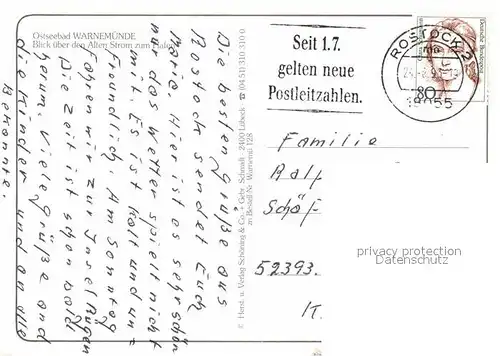 Ostseebad WARNEMÜNDE
Blick über den Alten Strom zum Hafen
Die besten Grüße aus
Rostock sendet Euch
Maria. Hier ist es sehr schön
nur das Wetter spielt nicht
mit. Es ist kalt und un
freundlich. Am Sonntag
fahren wir zur Insel Rügen
Die Zeit ist schon bald
herum. Viele Grüße and
die Kinder und an alle
Bekannte.
© Herst. u. Verlag Schöning & Co. + Gebr. Schmidt · 2400 Lübeck · ☎ (04 51) 310 310 0
zu Bestell Nr. Warnemü 128
Seit 1.7.
gelten neue
Postleitzahlen.
ROSTOCK 2
18055
80
Deutsche Bundespost
Familie
Ralf
Schäf
52393
K.
privacy protection
Datenschutz